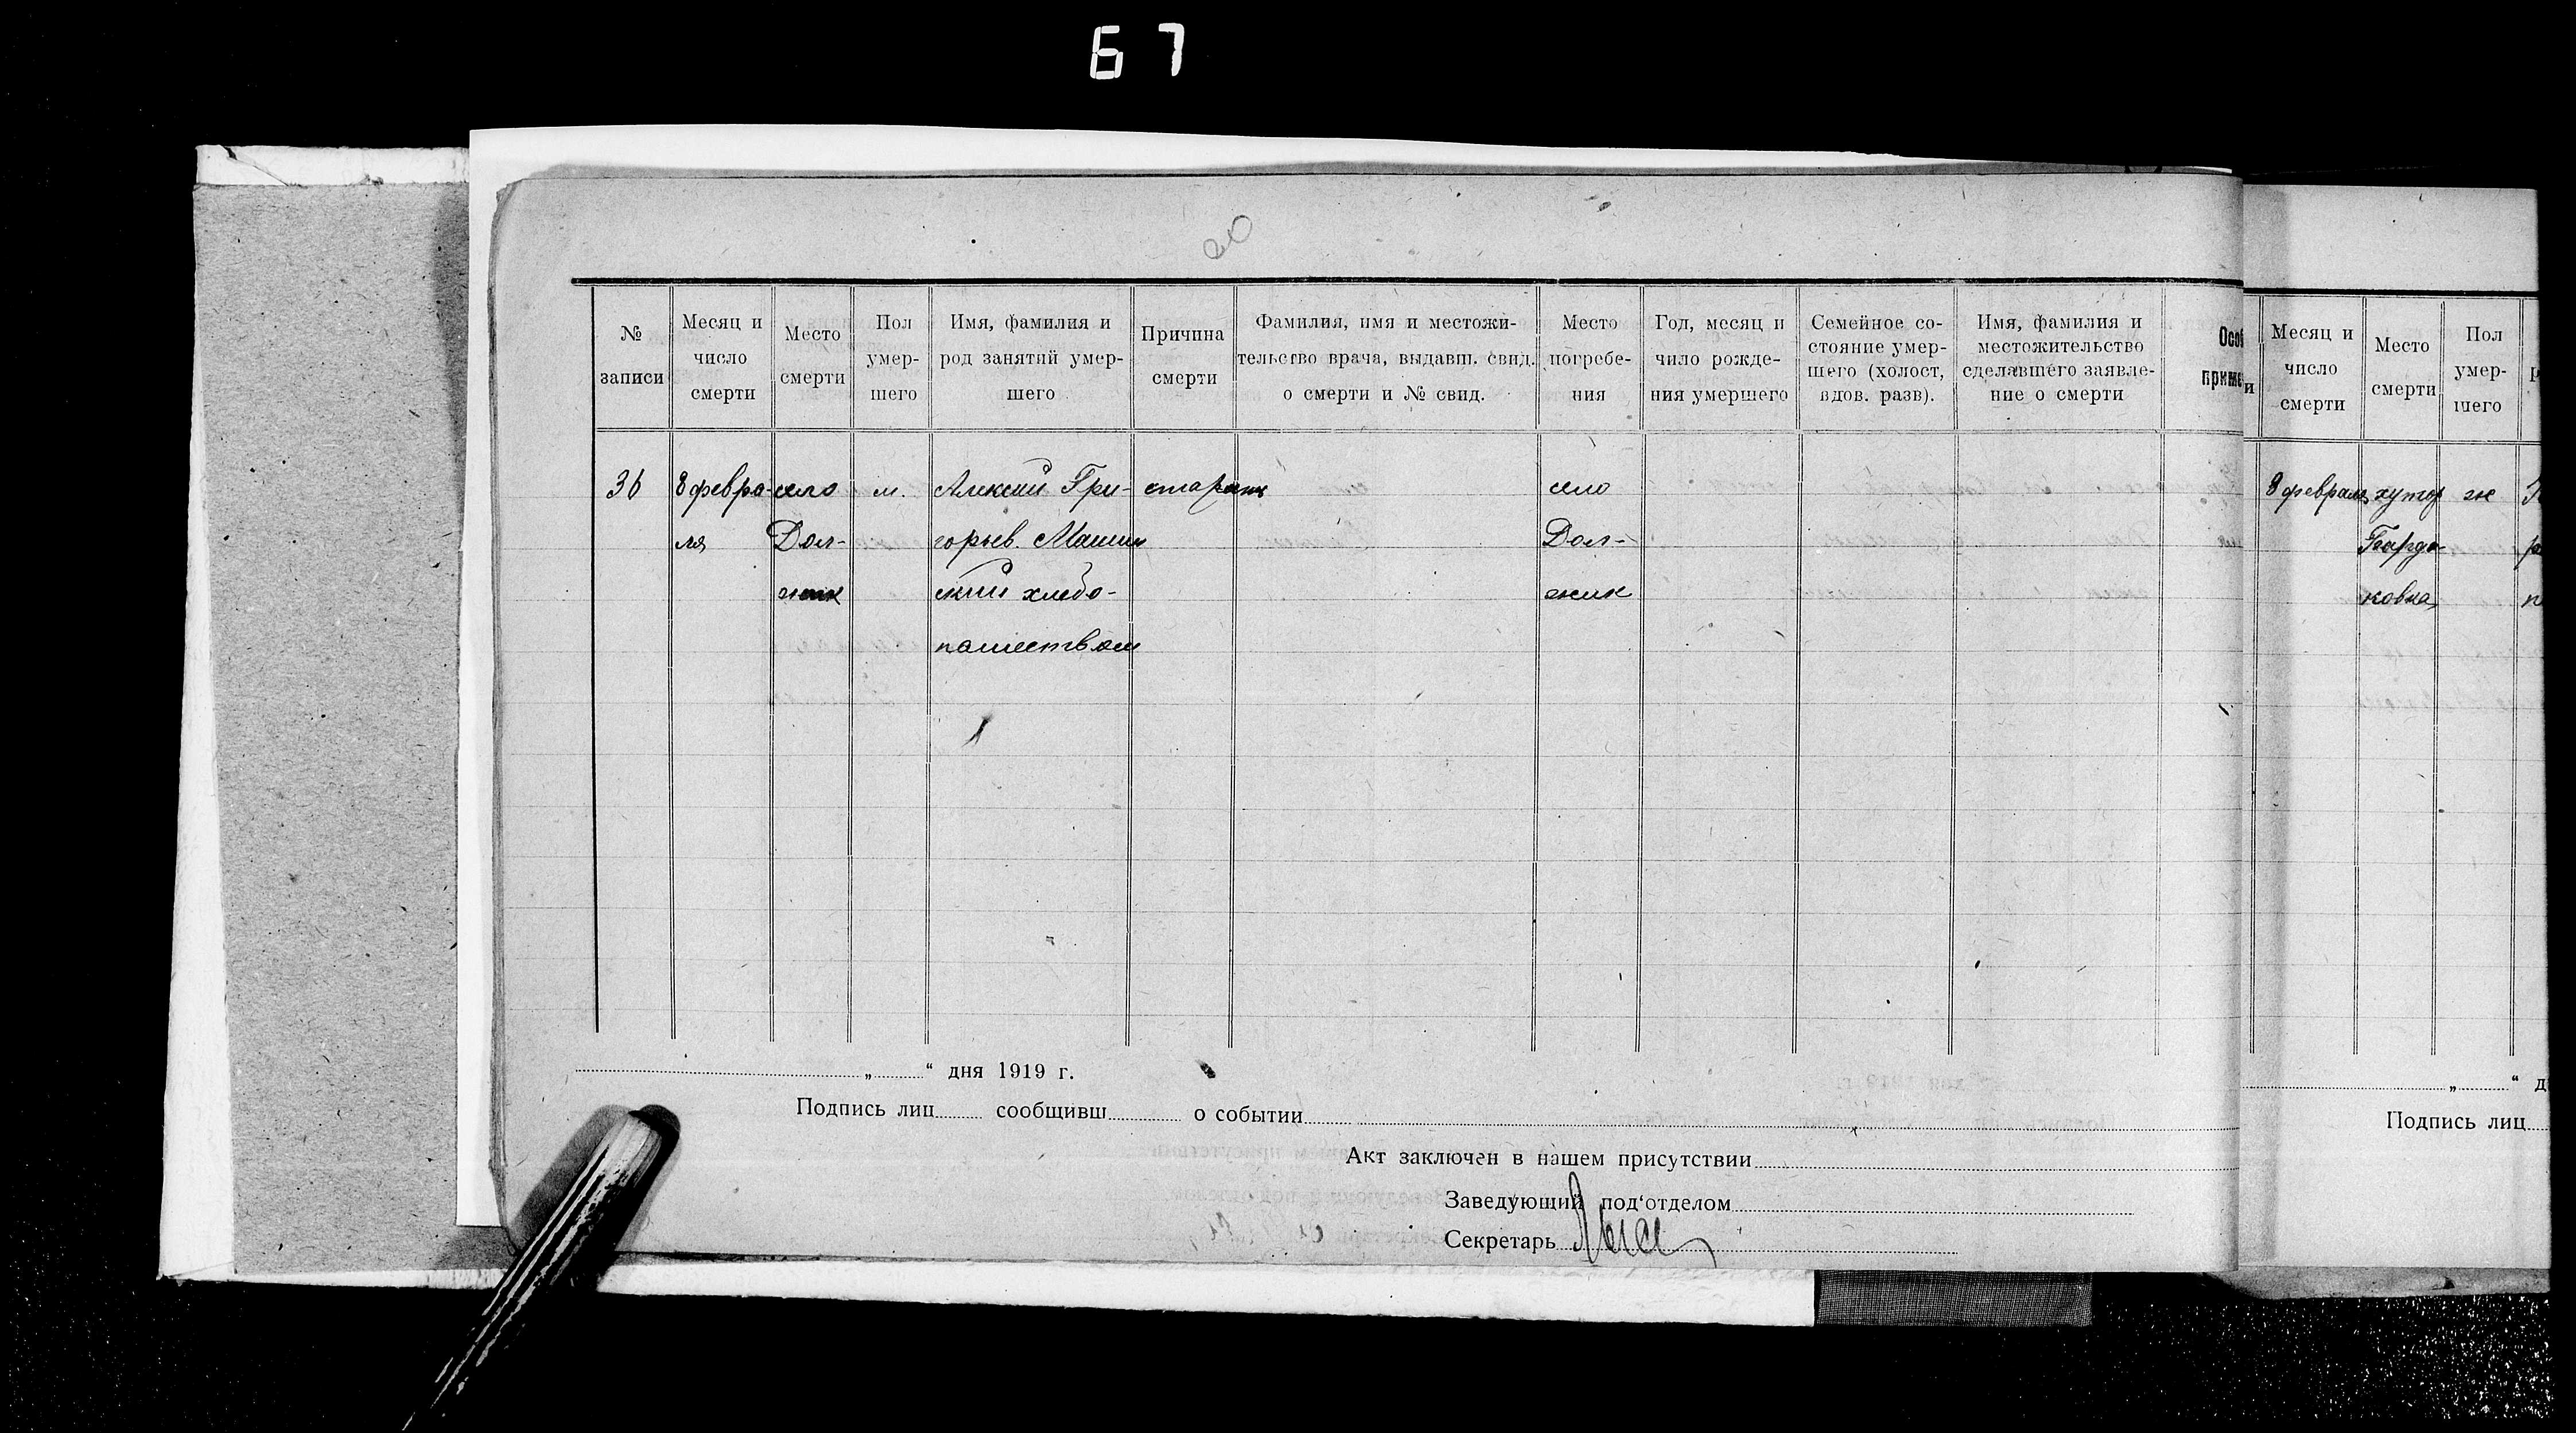 67
20
№ записи
Месяц и число смерти
Место смерти
Пол умер- шего
Имя, фамилия и род занятий умер- шего
Причина смерти
Фамилия, имя и местожи- тельство врача, выдавш. свид. о смерти и № свид.
Место погребе- ния
Год, месяц и чило рожде- ния умершего
Семейное со- стояние умер- шего (холост, вдов. разв).
Имя, фамилия и местожительство сделавшего заявле- ние о смерти
Особ
приме
36
8 февра-
ля
село
Дол-
жик
м.
Алексей Гри-
горьев. Машин
ский хлебо-
пашеством
село
Дол-
жик
„ “ дня 1919 г.
Подпись лиц сообщивш о событии
Акт заключен в нашем присутствии
Заведующий под‘отделом
Секретарь
и
Месяц и число смерти
Место смерти
Пол умер- шего
8 февраля
хутор
ковка
ж
„ “ д
Подпись лиц